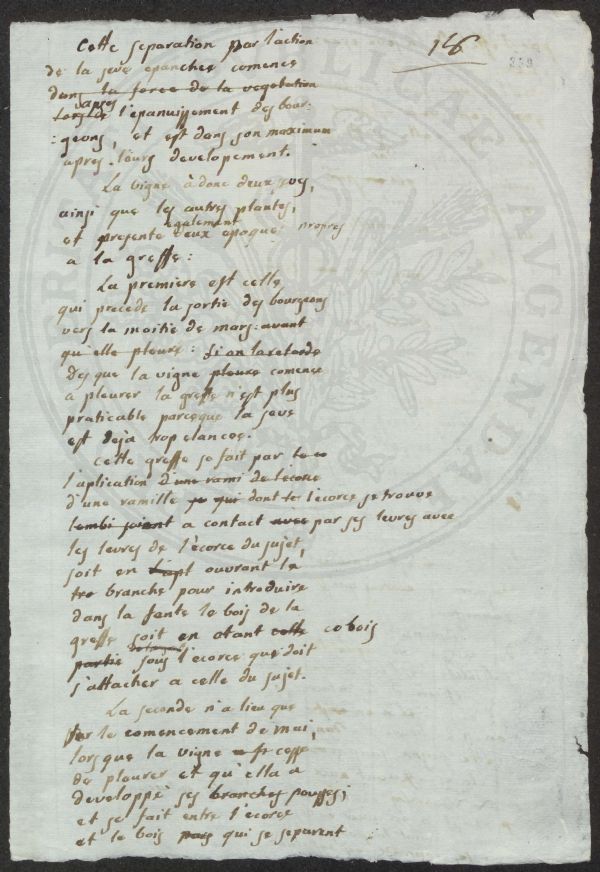 16
239
Cette separation par l'action
de la seve epanchee comence
dans la force de la vegetation
apres
Lors de l'epanuissement des bour-
:geons, et est dans son maximum
apres leurs developement.
La vigne à donc deux seves,
ainsi que les autres plantes,
egalement
et presente deux epoques propres
a la greffe:
La premiere est celle
qui precede la sortie des bourgeons
vers la moitie de mars: avant
qu'elle pleure: si on la retarde
Des que la vigne pleure comence
a pleurer la greffe n'est plus
praticable parceque la seve
est deja trop elancee.
Cette greffe se fait par
l'aplication d'une rami de l'ecorce
d'une ramille je qui dont le l'ecorce se trouve
soient a contact avec par ses levres avec
les levres de l'ecorce du sujet,
soit en ouvrant la
branche pour introduire
dans la fente le bois de la
greffe soit en otant cette ce bois
partie sous l'ecorce que doit
s'attacher a celle du sujet.
La seconde n'a lieu que
sur le comencement de mai,
lorsque la vigne cesse
de pleurer et qu'ella a
developpé ses branches pousses;
et se fait entre l'ecorce
et le bois pars qui se separent